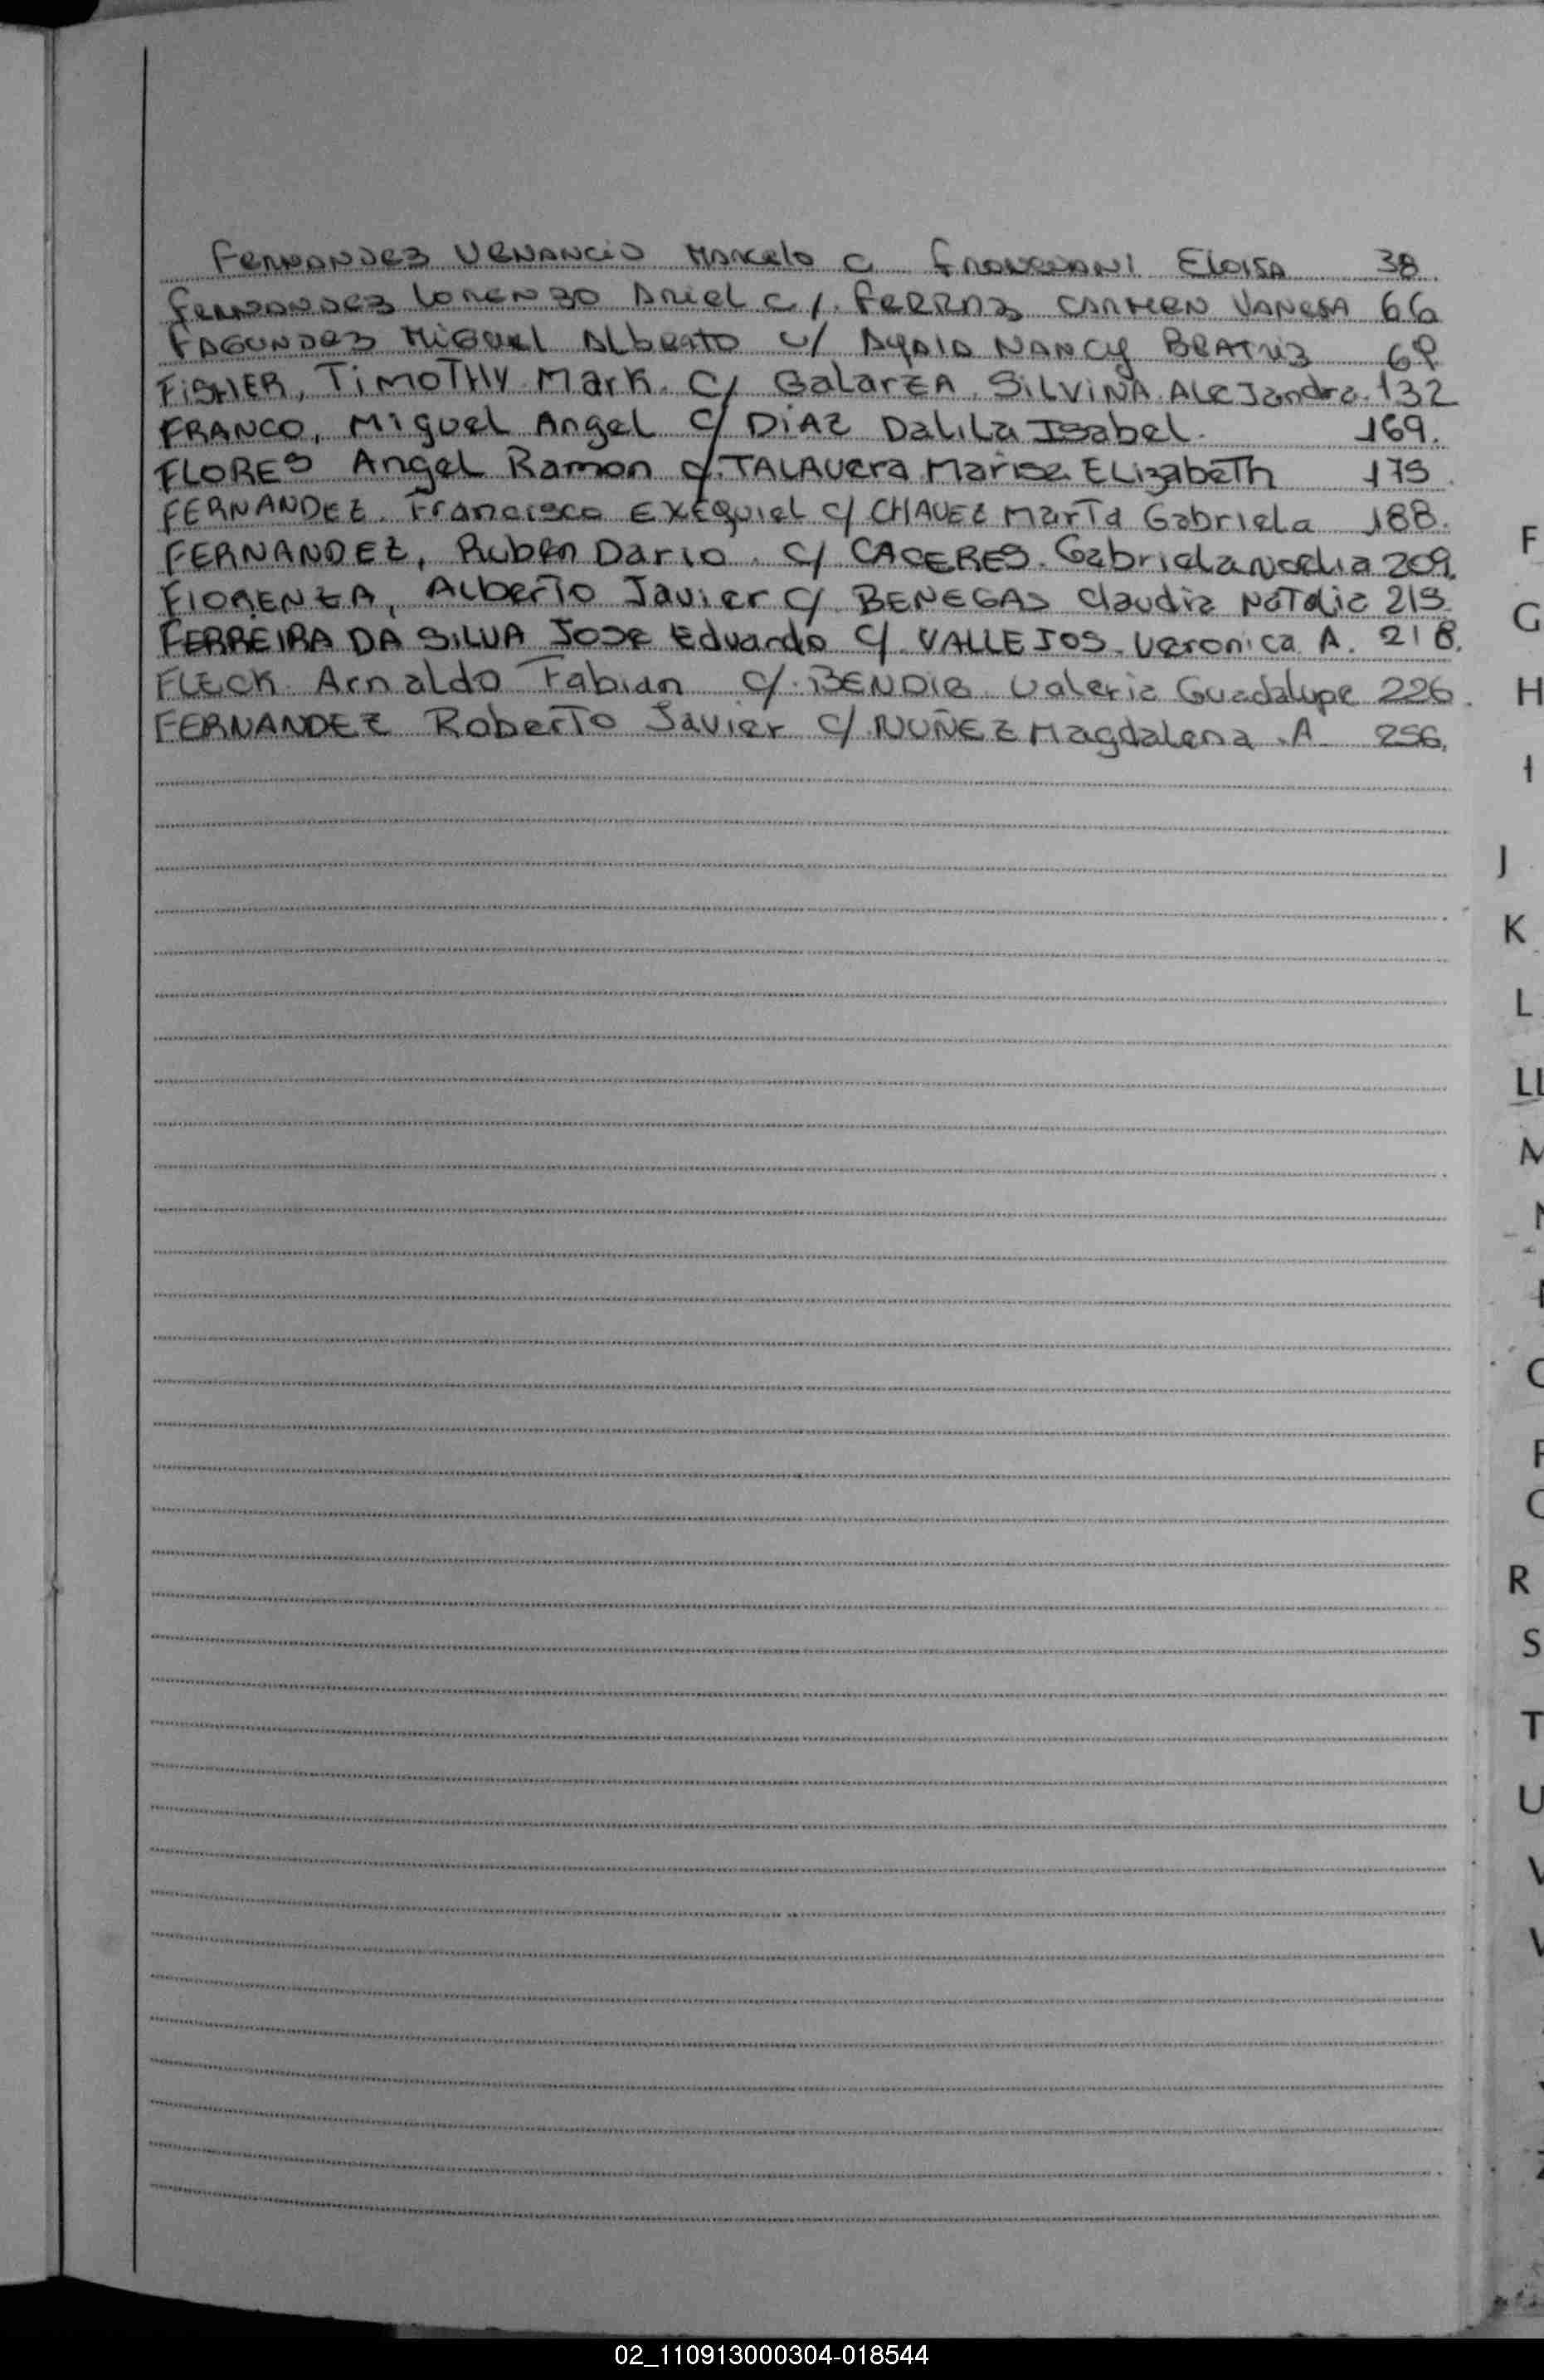 FERNANDEZ VENANCIO Marcelo C ELOISA 38
FERNANDEZ LORENZO ARIEL C/. FERRAZ CARMEN VANESA 66
FAGUNDEZ MIGUEL ALBERTO C/ AYALA NANCY BEATRIZ 69
FISHER, TIMOTHY Mark. C/ GALARZA, SILVINA ALEJandra. 132
FRANCO, Miguel Angel C/ DIAZ DaliLa Isabel. 169.
FLORES Angel Ramon c/. TALAVERA Marisa ELizabeTh 175.
FERNANDEZ. Francisco EXEquiel c/ CHAVEZ MarTa Gabriela 188.
FERNANDEZ, Ruben Dario. C/ CACERES. Gabriela 209.
FIORENZA, ALberTo Javier C/ BENEGAS Claudia NaTalia 215.
FERREIRA DA SILVA JOSE Eduardo C/. VALLEJOS. Veronica A. 218.
FLECK Arnaldo Fabian C/. Valeria Guadalupe 226.
FERNANDEZ RoberTo Javier C/ NUÑEZ Magdalena A 256.
F
G
H
I
J
K
L
LL
M
R
S
T
U
02_110913000304-018544